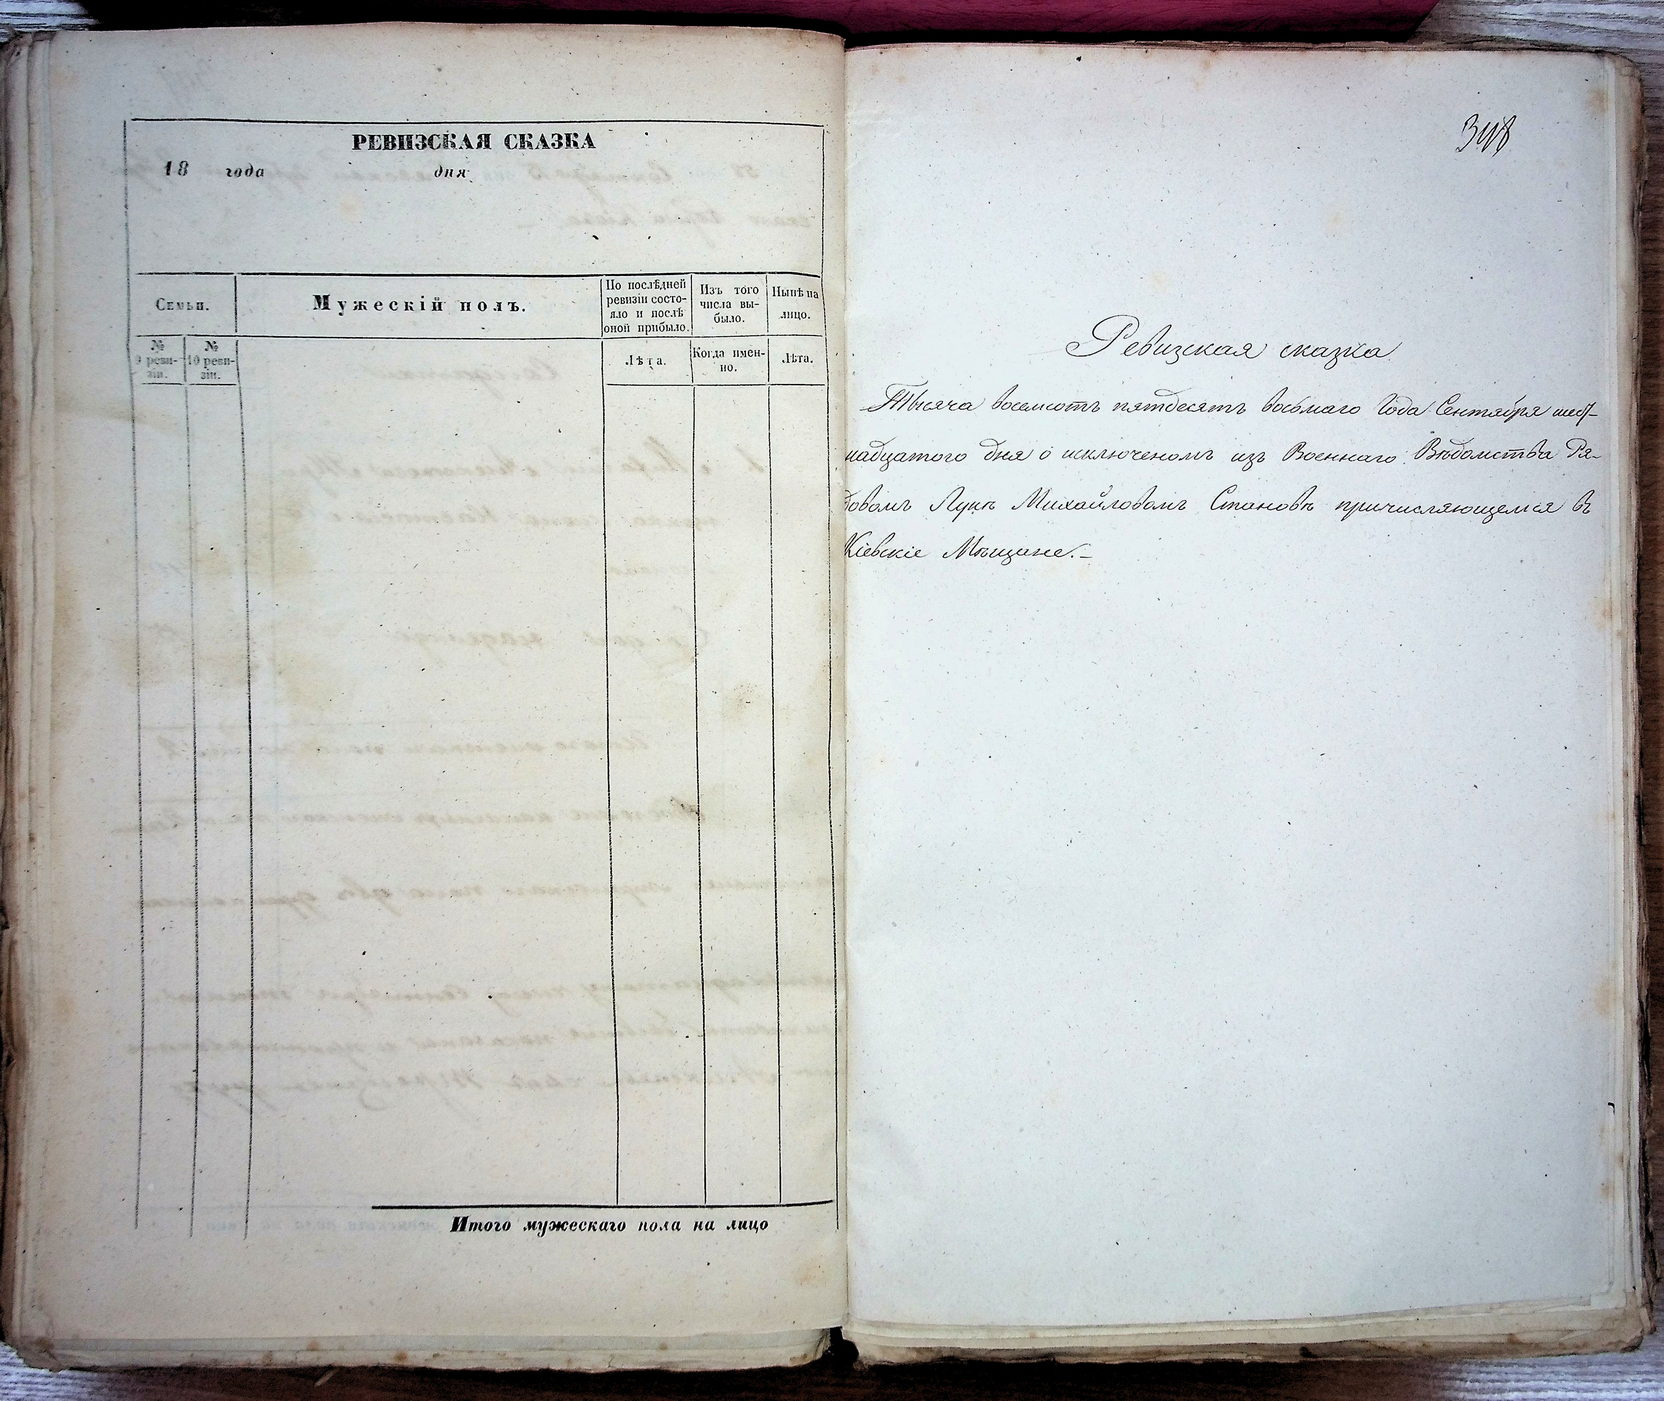 РЕВИЗСКАЯ СКАЗКА
18 года дня
Семьи.
№ 9 реви-
зіи.
№ 10 реви-
зіи.
Мужескій полъ.
По послѣдней
ревизіи состо-
яло и послѣ
оной прибыло.
Лѣта.
Изъ того
числа вы-
было.
Когда имен-
но.
Нынѣ на
лицо.
Лѣта.
Итого мужескаго пола на лицо
348
Ревизская сказка
Тысяча восемсотъ пятдесятъ восьмаго Года Сентября шест-
надцатого дня о исключеномъ изъ Военнаго Вѣдомства Ря-
довомъ Лукѣ Михайловомъ Становѣ причисляющемся въ
Кіевскіе Мѣщане.